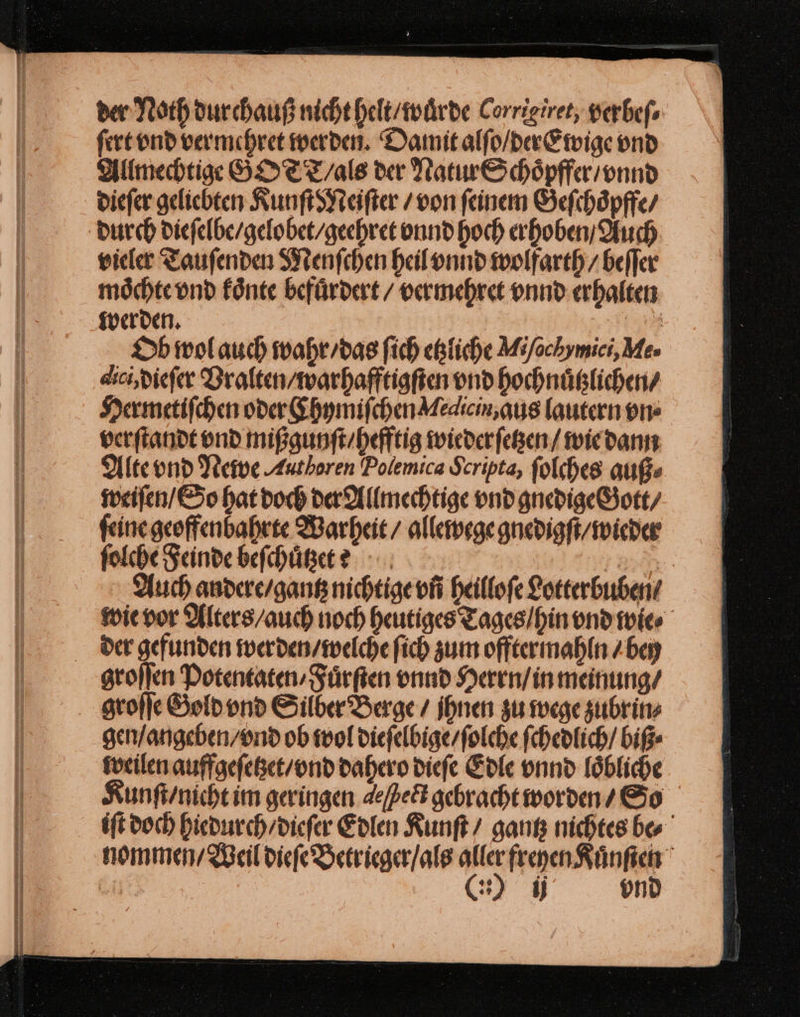 der Noth durchauß nicht helt/wuͤrde Corrigiret, verbeſ⸗
ſert vnd vermehret werden. Damit alſo/der Ewige vnd
Allmechtige GOTT/als der Natur Schoͤpffer/vnnd
dieſer geliebten Kunſt Meiſter / von ſeinem Geſchoͤpffe/
durch dieſelbe/gelobet/geehret vnnd hoch erhoben/Auch
vieler Tauſenden Menſchen heil vnnd wolfarth / beſſer
moͤchte vnd koͤnte befuͤrdert / vermehret vnnd erhalten
werden.
Ob wol auch wahr/das ſich etzliche Miſochymici, Me⸗
dici, dieſer Vralten/warhafftigſten vnd hochnuͤtzlichen/
Hermetiſchen oder Chymiſchen Medicin, aus lautern vn⸗
verſtandt vnd mißgunſt/hefftig wiederſetzen / wie dann
Alte vnd Newe Authoren Polemica Scripta, ſolches auß⸗
weiſen/So hat doch der Allmechtige vnd gnedige Gott/
ſeine geoffenbahrte Warheit / allewege gnedigſt/wieder
ſolche Feinde beſchuͤtzet ?
Auch andere/gantz nichtige vñ heilloſe Lotterbuben/
wie vor Alters/auch noch heutiges Tages/hin vnd wie⸗
der gefunden werden/welche ſich zum offtermahln / bey
groſſen Potentaten/Fuͤrſten vnnd Herrn/in meinung/
groſſe Gold vnd Silber Berge / jhnen zu wege zubrin⸗
gen/angeben/vnd ob wol dieſelbige/ſolche ſchedlich/ biß⸗
weilen auffgeſetzet/vnd dahero dieſe Edle vnnd loͤbliche
Kunſt/nicht im geringen deſpect gebracht worden / So
iſt doch hiedurch/dieſer Edlen Kunſt / gantz nichtes be⸗
nommen/Weil dieſe Betrieger/als aller freyen Kuͤnſten
(::) ij vnd